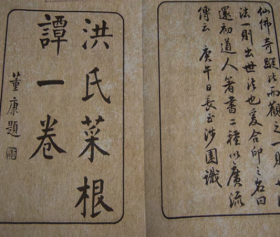 洪氏菜根
譚一卷
董康題
仙佛奇蹤
法一則出世法也爰合印之名曰
還初道人著書二種以廣流
傳云 庚午日長至涉園識